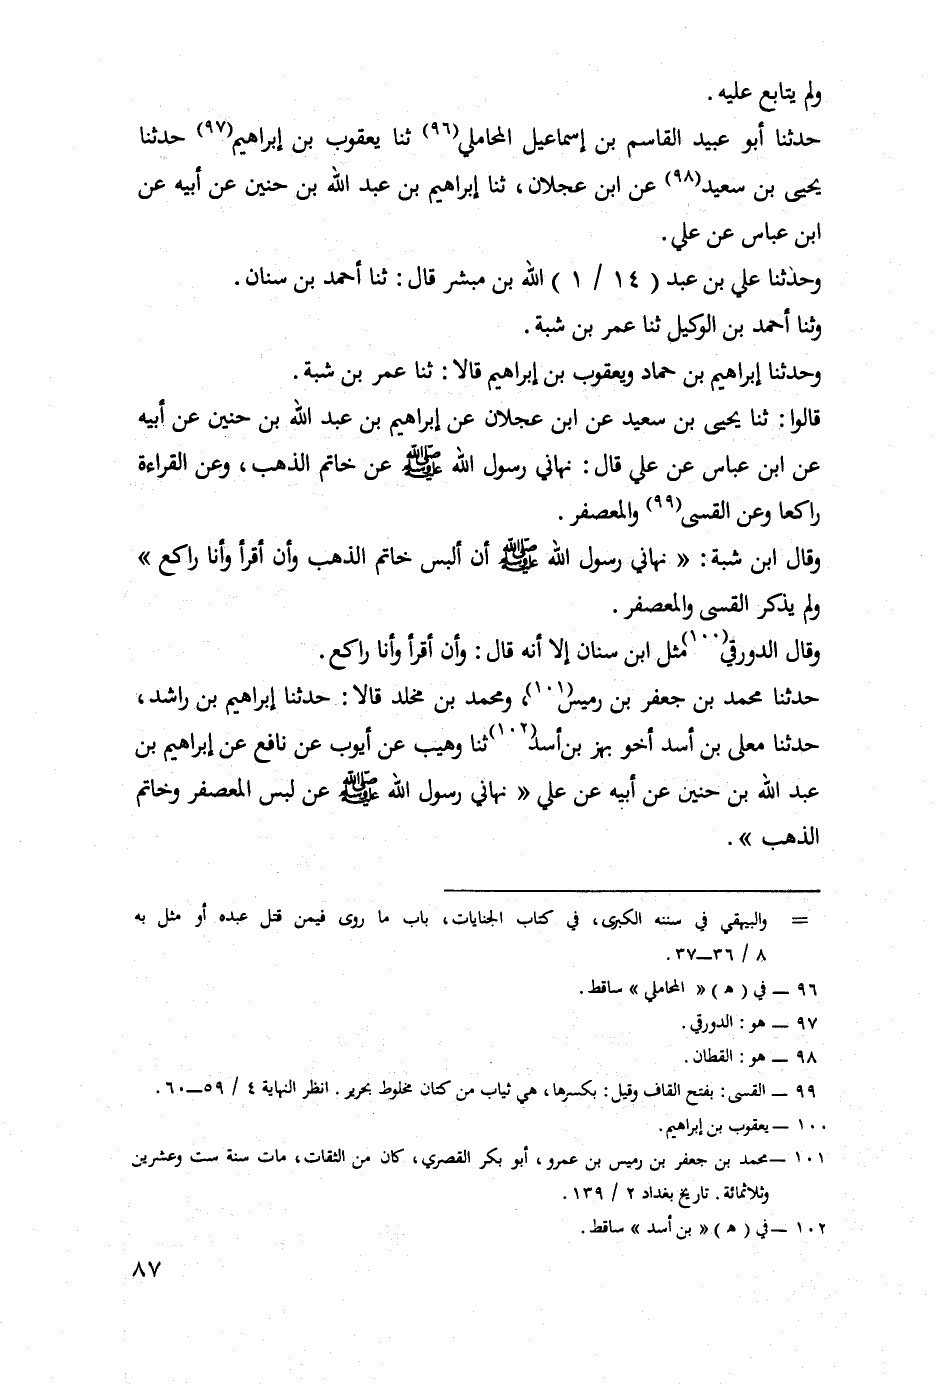 ولم يتابع عليه .
حدثنا أبو عبيد القاسم بن إسماعيل المحاملي(٩٦) ثنا يعقوب بن إبراهيم(٩٧) حدثنا
يحيى بن سعيد(٩٨) عن ابن عجلان ، ثنا إبراهيم بن عبد الله بن حنين عن أبيه عن
ابن عباس عن علي .
وحدثنا علي بن عبد ( ١٤ / ١ ) الله بن مبشر قال : ثنا أحمد بن سنان .
وثنا أحمد بن الوكيل ثنا عمر بن شبة .
وحدثنا إبراهيم بن حماد ويعقوب بن إبراهيم قالا : ثنا عمر بن شبة .
قالوا : ثنا يحيى بن سعيد عن ابن عجلان عن إبراهيم بن عبد الله بن حنين عن أبيه
عن ابن عباس عن علي قال : نهاني رسول الله ﷺ عن خاتم الذهب ، وعن القراءة
راكعا وعن القسى(٩٩) والمعصفر .
وقال ابن شبة : « نهاني رسول الله ﷺ أن ألبس خاتم الذهب وأن أقرأ وأنا راكع »
ولم يذكر القسى والمعصفر .
وقال الدورقي(١٠٠) مثل ابن سنان إلا أنه قال : وأن أقرأ وأنا راكع .
حدثنا محمد بن جعفر بن رميس(١٠١) ، ومحمد بن مخلد قالا : حدثنا إبراهيم بن راشد ،
حدثنا معلى بن أسد أخو بهز بن أسد(١٠٢) ثنا وهيب عن أيوب عن نافع عن إبراهيم بن
عبد الله بن حنين عن أبيه عن علي « نهاني رسول الله ﷺ عن لبس المعصفر وخاتم
الذهب » .
= والبيهقي في سننه الكبرى ، في كتاب الجنايات ، باب ما روى فيمن قتل عبده أو مثل به
٨ / ٣٦ــ٣٧ .
٩٦ ــ في ( هـ ) « المحاملي » ساقط .
٩٧ ــ هو : الدورقي .
٩٨ ــ هو : القطان .
٩٩ ــ القسى : بفتح القاف وقيل : بكسرها ، هي ثياب من كتان مخلوط بحرير . انظر النهاية ٤ / ٥٩ــ٦٠ .
١٠٠ ــ يعقوب بن إبراهيم .
١٠١ ــ محمد بن جعفر بن رميس بن عمرو ، أبو بكر القصري ، كان من الثقات ، مات سنة ست وعشرين
وثلاثمائة . تاريخ بغداد ٢ / ١٣٩ .
١٠٢ ــ في ( هـ ) « بن أسد » ساقط .
٨٧